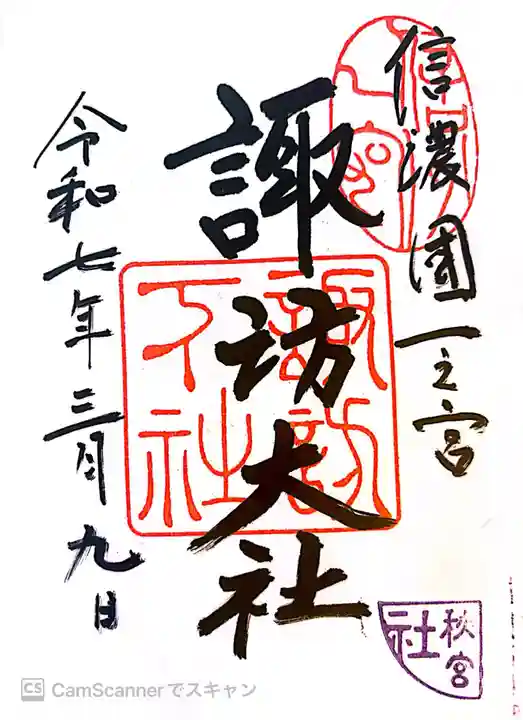 信濃國一之宮
諏訪大社
令和七年三月九日
諏訪
大社
秋宮
社
CS CamScannerでスキャン